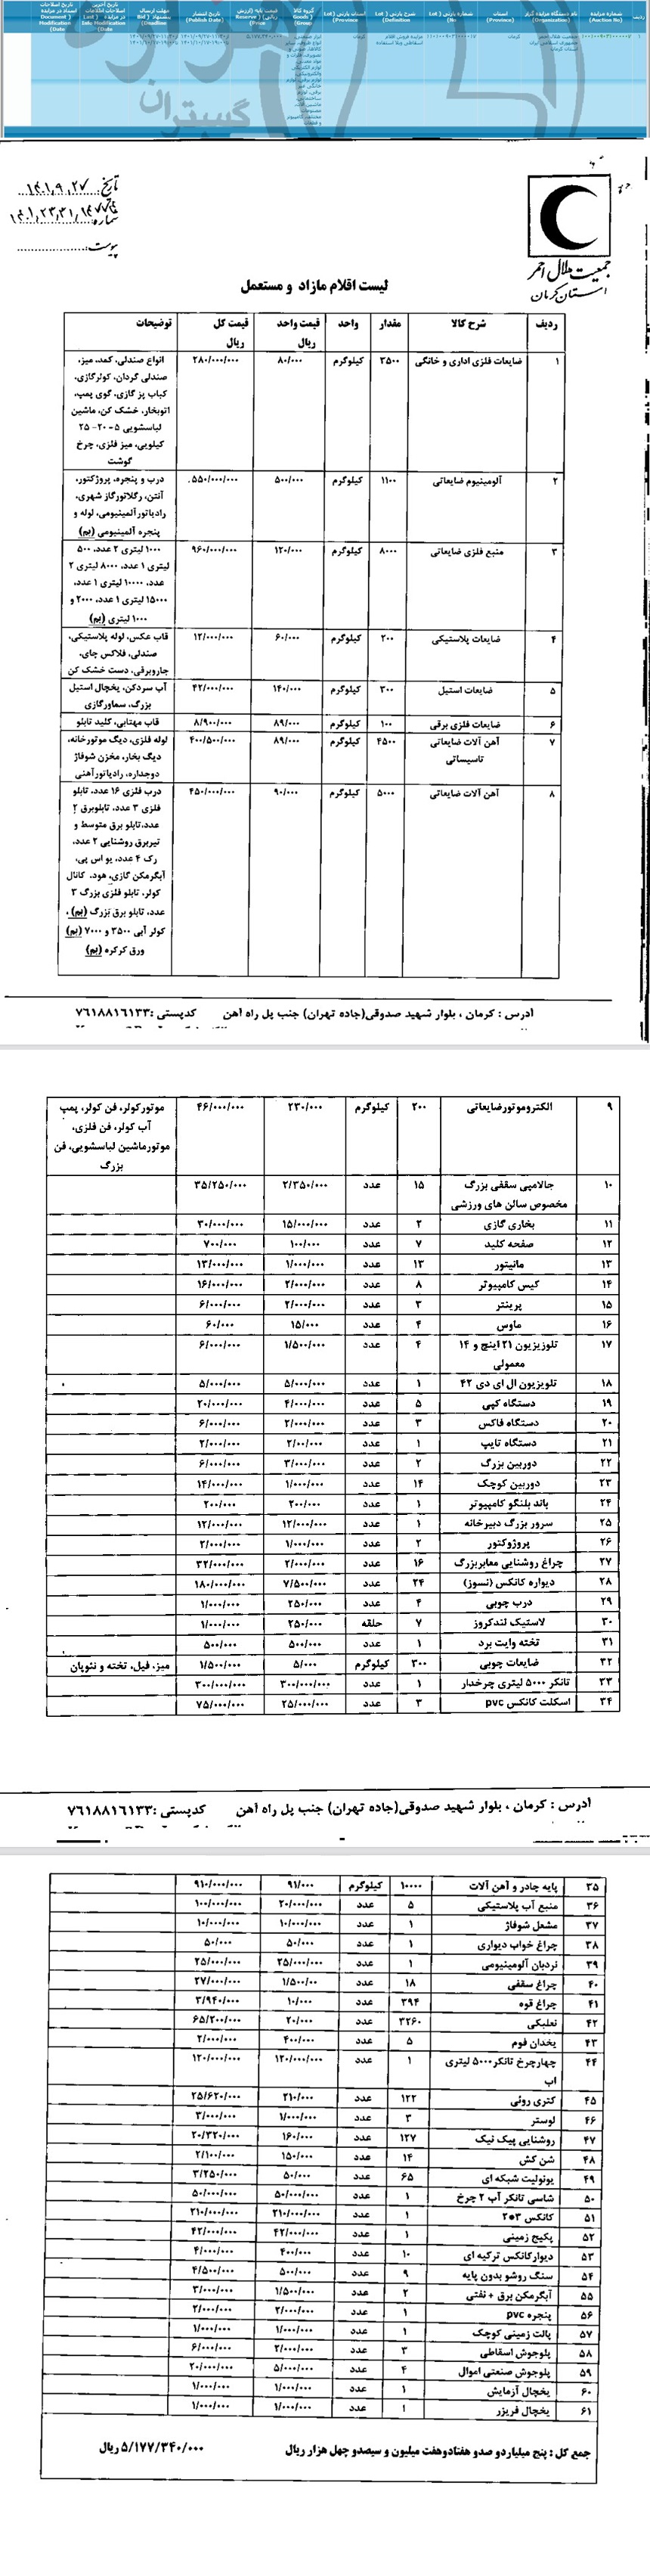 ردیف
شماره مزایده (Auction No)
نام دستگاه مزایده گزار (Organization)
استان (Province)
شماره پارتی (Lot No)
شرح پارتی (Lot Definition)
استان پارتی (Lot Province)
گروه کالا (Goods Group)
قیمت پایه (ارزش ریالی) (Reserve Price)
تاریخ انتشار (Publish Date)
مهلت ارسال پیشنهاد (Bid Deadline)
جمعیت هلال احمر جمهوری اسلامی ایران استان کرمان
کرمان
مزایده فروش اقلام اسقاطی وبلا استفاده
کرمان
تاریخ: ۱۴۰۱,۹,۲۷
شماره:
پیوست:
جمعیت هلال احمر
استان کرمان
لیست اقلام مازاد و مستعمل
ردیف شرح کالا مقدار واحد قیمت واحد ریال قیمت کل ریال توضیحات
۱ ضایعات فلزی اداری و خانگی ۳۵۰۰ کیلوگرم ۸۰/۰۰۰ ۲۸۰/۰۰۰/۰۰۰ انواع صندلی، کمد، میز،
صندلی گردان، کولرگازی،
کباب پز گازی، گوی پمپ،
اتوبخار، خشک کن، ماشین
لباسشویی ۵-۲۰-۲۵
کیلویی، میز فلزی، چرخ
گوشت
۲ آلومینیوم ضایعاتی ۱۱۰۰ کیلوگرم ۵۰۰/۰۰۰ ۵۵۰/۰۰۰/۰۰۰ درب و پنجره، پروژکتور،
آنتن، رگلاتورگاز شهری،
رادیاتورآلمینیومی، لوله و
پنجره آلمینیومی (بم)
۳ منبع فلزی ضایعاتی ۸۰۰۰ کیلوگرم ۱۲۰/۰۰۰ ۹۶۰/۰۰۰/۰۰۰ ۱۰۰۰ لیتری ۲ عدد، ۵۰۰
لیتری ۱ عدد، ۸۰۰۰ لیتری ۲
عدد، ۱۰۰۰۰ لیتری ۱ عدد،
۱۵۰۰۰ لیتری ۱ عدد، ۲۰۰۰ و
۱۰۰۰ لیتری (بم)
۴ ضایعات پلاستیکی ۲۰۰ کیلوگرم ۶۰/۰۰۰ ۱۲/۰۰۰/۰۰۰ قاب عکس، لوله پلاستیکی،
صندلی، فلاکس چای،
جاروبرقی، دست خشک کن
۵ ضایعات استیل ۳۰۰ کیلوگرم ۱۴۰/۰۰۰ ۴۲/۰۰۰/۰۰۰ آب سردکن، یخچال استیل
بزرگ، سماورگازی
۶ ضایعات فلزی برقی ۱۰۰ کیلوگرم ۸۹/۰۰۰ ۸/۹۰۰/۰۰۰ قاب مهتابی، کلید تابلو
۷ آهن آلات ضایعاتی تاسیساتی ۴۵۰۰ کیلوگرم ۸۹/۰۰۰ ۴۰۰/۵۰۰/۰۰۰ لوله فلزی، دیگ موتورخانه،
دیگ بخار، مخزن شوفاژ
دوجداره، رادیاتورآهنی
۸ آهن آلات ضایعاتی ۵۰۰۰ کیلوگرم ۹۰/۰۰۰ ۴۵۰/۰۰۰/۰۰۰ درب فلزی ۱۶ عدد، تابلو
فلزی ۳ عدد، تابلوبرق ۲
عدد، تابلو برق متوسط و
تیربرق روشنایی ۲ عدد،
رک ۴ عدد، یو اس پی،
آبگرمکن گازی، هود، کانال
کولر، تابلو فلزی بزرگ ۳
عدد، تابلو برق بزرگ (بم)،
کولر آبی ۳۵۰۰ و ۷۰۰۰ (بم)
ورق کرکره (بم)
آدرس : کرمان ، بلوار شهید صدوقی(جاده تهران) جنب پل راه آهن کدپستی :۷۶۱۸۸۱۶۱۳۳
۹ الکتروموتورضایعاتی ۲۰۰ کیلوگرم ۲۳۰/۰۰۰ ۴۶/۰۰۰/۰۰۰ موتورکولر، فن کولر، پمپ
آب کولر، فن فلزی،
موتورماشین لباسشویی، فن
بزرگ
۱۰ جالامپی سقفی بزرگ مخصوص سالن های ورزشی ۱۵ عدد ۲/۳۵۰/۰۰۰ ۳۵/۲۵۰/۰۰۰
۱۱ بخاری گازی ۲ عدد ۱۵/۰۰۰/۰۰۰ ۳۰/۰۰۰/۰۰۰
۱۲ صفحه کلید ۷ عدد ۱۰۰/۰۰۰ ۷۰۰/۰۰۰
۱۳ مانیتور ۱۳ عدد ۱/۰۰۰/۰۰۰ ۱۳/۰۰۰/۰۰۰
۱۴ کیس کامپیوتر ۸ عدد ۲/۰۰۰/۰۰۰ ۱۶/۰۰۰/۰۰۰
۱۵ پرینتر ۳ عدد ۲/۰۰۰/۰۰۰ ۶/۰۰۰/۰۰۰
۱۶ ماوس ۴ عدد ۱۵/۰۰۰ ۶۰/۰۰۰
۱۷ تلوزیزیون ۲۱ اینچ و ۱۴ معمولی ۴ عدد ۱/۵۰۰/۰۰۰ ۶/۰۰۰/۰۰۰
۱۸ تلویزیون ال ای دی ۴۲ ۱ عدد ۵/۰۰۰/۰۰۰ ۵/۰۰۰/۰۰۰
۱۹ دستگاه کپی ۵ عدد ۴/۰۰۰/۰۰۰ ۲۰/۰۰۰/۰۰۰
۲۰ دستگاه فاکس ۳ عدد ۲/۰۰۰/۰۰۰ ۶/۰۰۰/۰۰۰
۲۱ دستگاه تایپ ۱ عدد ۲/۰۰/۰۰۰ ۲/۰۰۰/۰۰۰
۲۲ دوربین بزرگ ۲ عدد ۳/۰۰۰/۰۰۰ ۶/۰۰۰/۰۰۰
۲۳ دوربین کوچک ۱۴ عدد ۱/۰۰۰/۰۰۰ ۱۴/۰۰۰/۰۰۰
۲۴ باند بلنگو کامپیوتر ۱ عدد ۲۰۰/۰۰۰ ۲۰۰/۰۰۰
۲۵ سرور بزرگ دبیرخانه ۱ عدد ۱۲/۰۰۰/۰۰۰ ۱۲/۰۰۰/۰۰۰
۲۶ پروژوکتور ۲ عدد ۱/۰۰۰/۰۰۰ ۲/۰۰۰/۰۰۰
۲۷ چراغ روشنایی معابربزرگ ۱۶ عدد ۲/۰۰۰/۰۰۰ ۳۲/۰۰۰/۰۰۰
۲۸ دیواره کانکس (نسوز) ۲۴ عدد ۷/۵۰۰/۰۰۰ ۱۸۰/۰۰۰/۰۰۰
۲۹ درب چوبی ۴ عدد ۲۵۰/۰۰۰ ۱/۰۰۰/۰۰۰
۳۰ لاستیک تندکروز ۷ حلقه ۲۵۰/۰۰۰ ۱/۰۰۰/۰۰۰
۳۱ تخته وایت برد ۱ عدد ۵۰۰/۰۰۰ ۵۰۰/۰۰۰
۳۲ ضایعات چوبی ۳۰۰ کیلوگرم ۵/۰۰۰ ۱/۵۰۰/۰۰۰ میز، فیل، تخته و نئوپان
۳۳ تانکر ۵۰۰۰ لیتری چرخدار ۱ عدد ۳۰۰/۰۰۰/۰۰۰ ۳۰۰/۰۰۰/۰۰۰
۳۴ اسکلت کانکس pvc ۳ عدد ۲۵/۰۰۰/۰۰۰ ۷۵/۰۰۰/۰۰۰
آدرس : کرمان ، بلوار شهید صدوقی(جاده تهران) جنب پل راه آهن کدپستی :۷۶۱۸۸۱۶۱۳۳
۳۵ پایه چادر و آهن آلات ۱۰۰۰۰ کیلوگرم ۹۱/۰۰۰ ۹۱۰/۰۰۰/۰۰۰
۳۶ منبع آب پلاستیکی ۵ عدد ۲۰/۰۰۰/۰۰۰ ۱۰۰/۰۰۰/۰۰۰
۳۷ مشعل شوفاژ ۱ عدد ۱۰/۰۰۰/۰۰۰ ۱۰/۰۰۰/۰۰۰
۳۸ چراغ خواب دیواری ۱ عدد ۵۰/۰۰۰ ۵۰/۰۰۰
۳۹ نردبان آلومینیومی ۱ عدد ۲۵/۰۰۰/۰۰۰ ۲۵/۰۰۰/۰۰۰
۴۰ چراغ سقفی ۱۸ عدد ۱/۵۰۰/۰۰ ۲۷/۰۰۰/۰۰۰
۴۱ چراغ قوه ۳۹۴ عدد ۱۰/۰۰۰ ۳/۹۴۰/۰۰۰
۴۲ نعلبکی ۳۲۶۰ عدد ۲۰/۰۰۰ ۶۵/۲۰۰/۰۰۰
۴۳ یخدان فوم ۵ عدد ۴۰۰/۰۰۰ ۲/۰۰۰/۰۰۰
۴۴ چهارچرخ تانکر ۵۰۰۰ لیتری اب ۱ عدد ۱۲۰/۰۰۰/۰۰۰ ۱۲۰/۰۰۰/۰۰۰
۴۵ کتری روئی ۱۲۲ عدد ۲۱۰/۰۰۰ ۲۵/۶۲۰/۰۰۰
۴۶ لوستر ۳ عدد ۱/۰۰۰/۰۰۰ ۳/۰۰۰/۰۰۰
۴۷ روشنایی پیک نیک ۱۲۷ عدد ۱۶۰/۰۰۰ ۲۰/۳۲۰/۰۰۰
۴۸ شن کش ۱۴ عدد ۱۵۰/۰۰۰ ۲/۱۰۰/۰۰۰
۴۹ یونولیت شبکه ای ۶۵ عدد ۵۰/۰۰۰ ۳/۲۵۰/۰۰۰
۵۰ شاسی تانکر آب ۲ چرخ ۱ عدد ۵۰/۰۰۰/۰۰۰ ۵۰/۰۰۰/۰۰۰
۵۱ کانکس ۳*۲ ۱ عدد ۲۱۰/۰۰۰/۰۰۰ ۲۱۰/۰۰۰/۰۰۰
۵۲ پکیج زمینی ۱ عدد ۴۲/۰۰۰/۰۰۰ ۴۲/۰۰۰/۰۰۰
۵۳ دیوارکانکس ترکیه ای ۱۰ عدد ۴۰۰/۰۰۰ ۴/۰۰۰/۰۰۰
۵۴ سنگ روشو بدون پایه ۹ عدد ۵۰۰/۰۰۰ ۴/۵۰۰/۰۰۰
۵۵ آبگرمکن برق + نفتی ۲ عدد ۱/۵۰۰/۰۰۰ ۳/۰۰۰/۰۰۰
۵۶ پنجره pvc ۱ عدد ۲/۰۰۰/۰۰۰ ۲/۰۰۰/۰۰۰
۵۷ پالت زمینی کوچک ۱ عدد ۱/۰۰۰/۰۰۰ ۱/۰۰۰/۰۰۰
۵۸ پلوجوش اسقاطی ۳ عدد ۲/۰۰۰/۰۰۰ ۶/۰۰۰/۰۰۰
۵۹ پلوجوش صنعتی اموال ۴ عدد ۵/۰۰۰/۰۰۰ ۲۰/۰۰۰/۰۰۰
۶۰ یخچال آزمایش ۱ عدد ۱/۰۰۰/۰۰۰ ۱/۰۰۰/۰۰۰
۶۱ یخچال فریزر ۱ عدد ۱/۰۰۰/۰۰۰ ۱/۰۰۰/۰۰۰
جمع کل : پنج میلیاردو صدو هفتادوهفت میلیون و سیصدو چهل هزار ریال ۵/۱۷۷/۳۴۰/۰۰۰ ریال